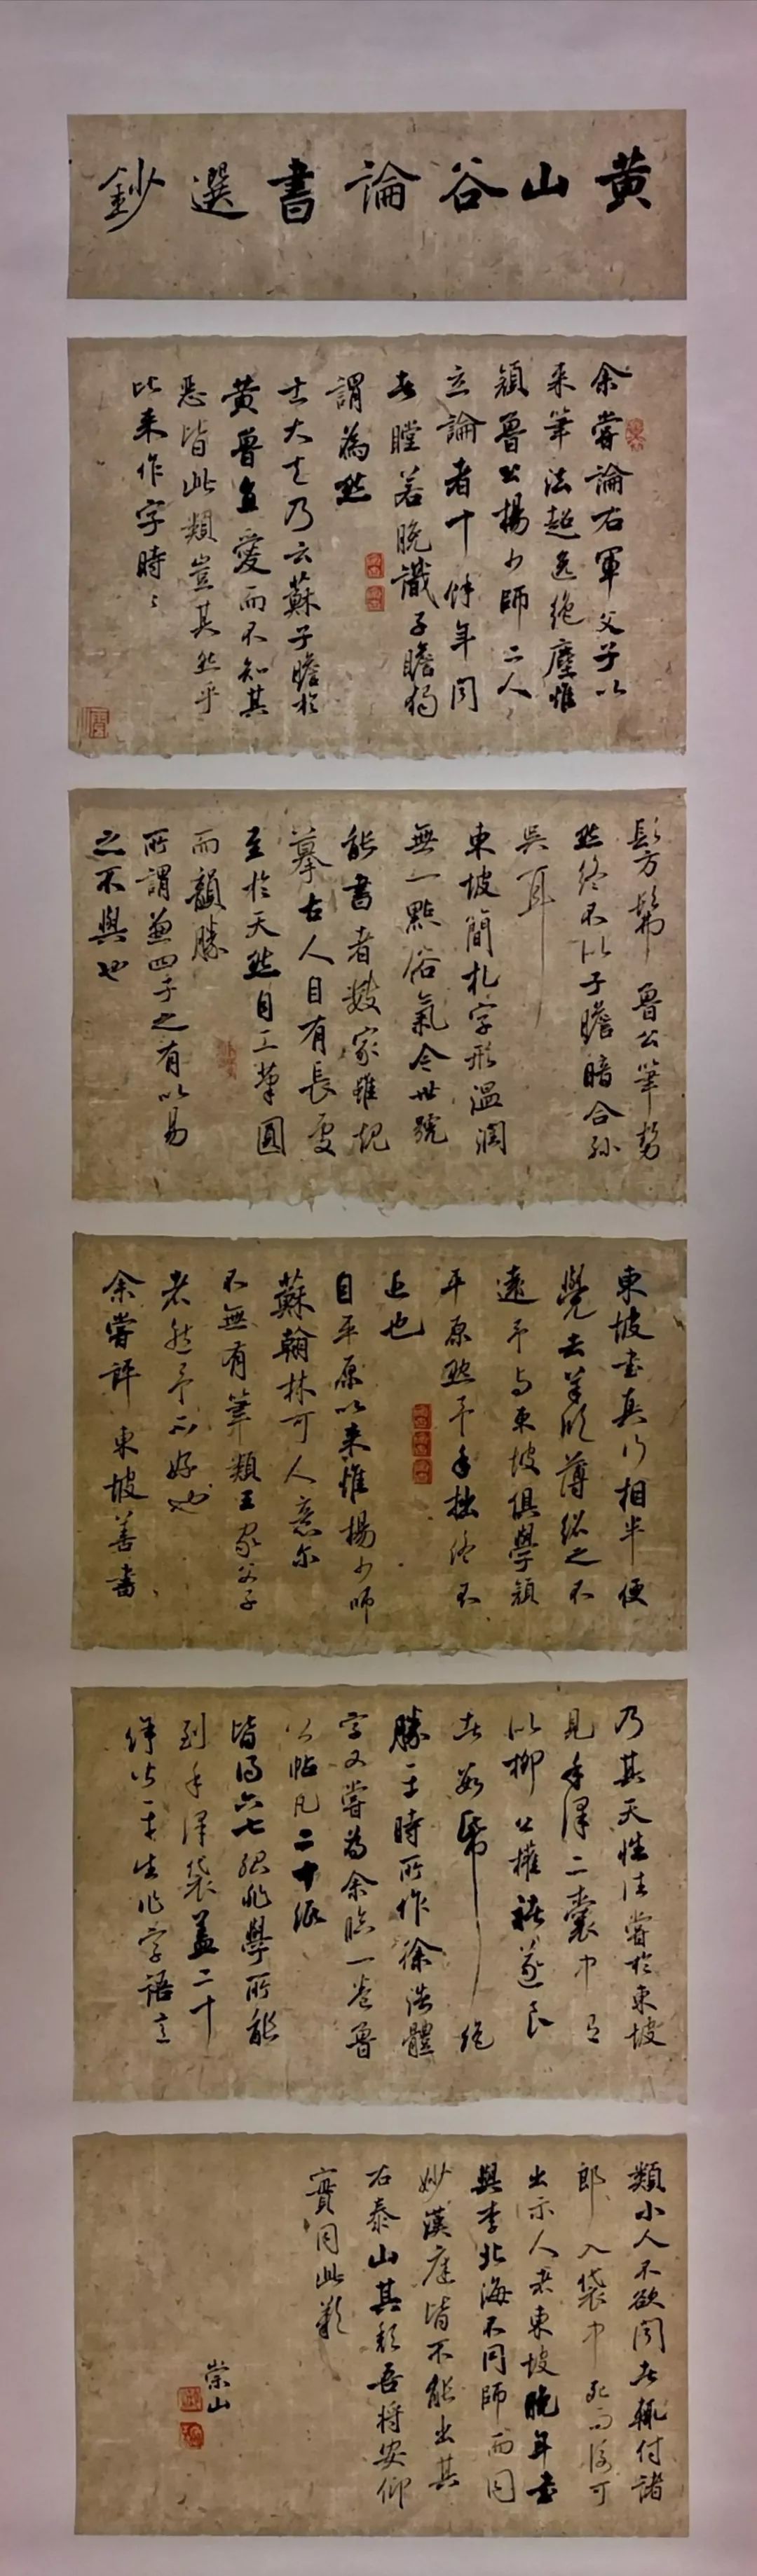 黄山谷論書選鈔
余嘗論右軍父子以
來筆法超逸絶塵惟
顏魯公楊少師二人
立論者十餘年聞
者瞠若晚識子瞻獨
謂為然
士大夫乃云蘇子瞻於
黄魯直愛而不知其
惡皆此類豈其然乎
比来作字時時
髣髴魯公筆勢
然終不似子瞻暗合孫
吳耳
東坡簡札字形温潤
無一點俗氣今世號
能書者數家雖規
摹古人自有長處
至於天然自工筆圓
而韻勝
所謂兼四子之有以易
之不與也
東坡書真行相半便
覺去羊欣薄紹之不
遠予与東坡俱學顏
平原然予手拙終不
近也
自平原以来惟楊少師
蘇翰林可人意尔
不無有筆類王家父子
者然予不好也
余嘗評東坡善書
乃其天性往嘗於東坡
見手澤二囊中有
似柳公權褚遂良
者數紙絶
勝平時所作徐浩體
字又嘗為余臨一卷魯
公帖凡二十紙
皆得六七殆非學所能
到手澤袋蓋二十
餘皆平生作字語言
類小人不欲聞者輒付諸
郎入袋中死而後可
出示人者東坡晚年書
與李北海不同師而同
妙漢庭皆不能出其
右泰山其頹吾將安仰
實同此歎
崇山